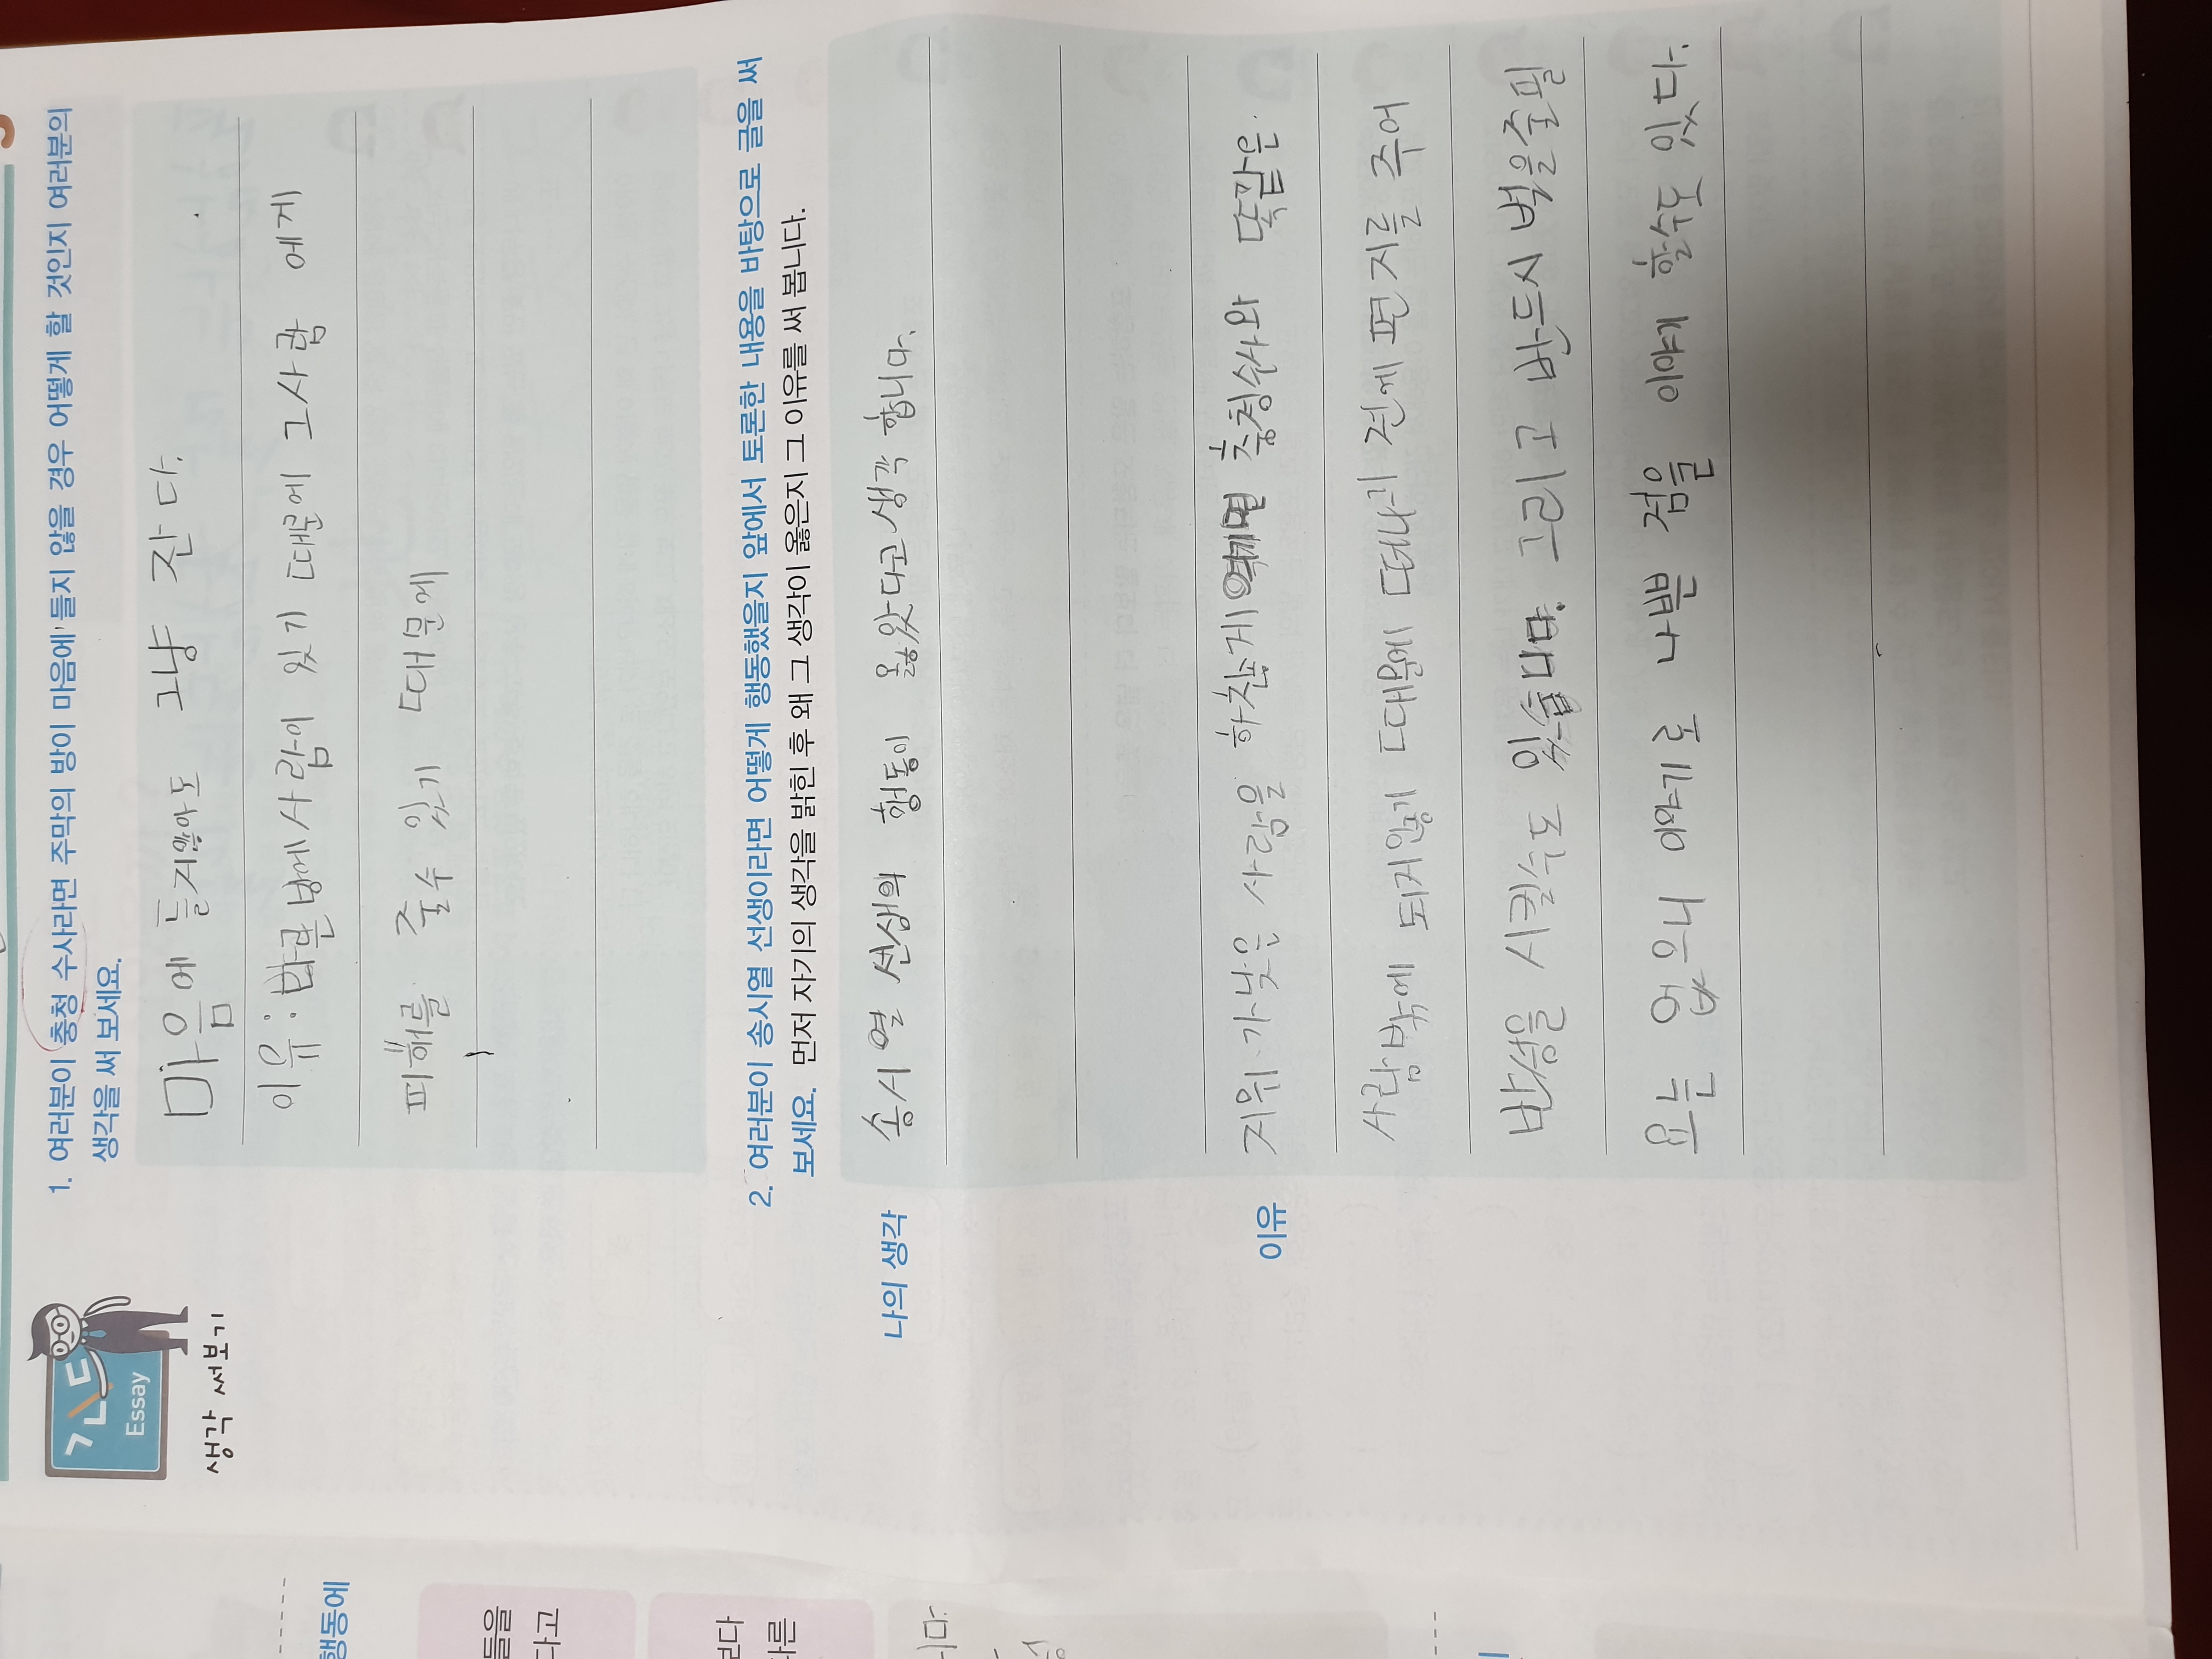 ㄱㄴㄷ
Essay
생각 써보기
1. 여러분이 충청 수사라면 주막의 방이 마음에 들지 않을 경우 어떻게 할 것인지 여러분의
생각을 써 보세요.
마음에 들지않아도 그냥 잔다.
이유: 다른 방에 사람이 있기 때문에 그사람 에게
피해를 줄수 있기 때문에
2. 여러분이 송시열 선생이라면 어떻게 행동했을지 앞에서 토론한 내용을 바탕으로 글을 써
보세요. 먼저 자기의 생각을 밝힌 후 왜 그 생각이 옳은지 그 이유를 써 봅니다.
나의 생각
송시열 선생의 행동이 옳았다고 생각 합니다.
이유
지위가 낮은 사람을 하찮게 여기면 충청수사와 똑같은
사람밖에 되지않게 때문에 떠나기 전에 편지를 주어
반성을 시킬수도 있습니다. 그리고 반드시 벌을줄필
요는 없으니 이야기로 나쁜 점을 이야기 할수도 있다.
행동에
들을
다고
보다
다른
니다